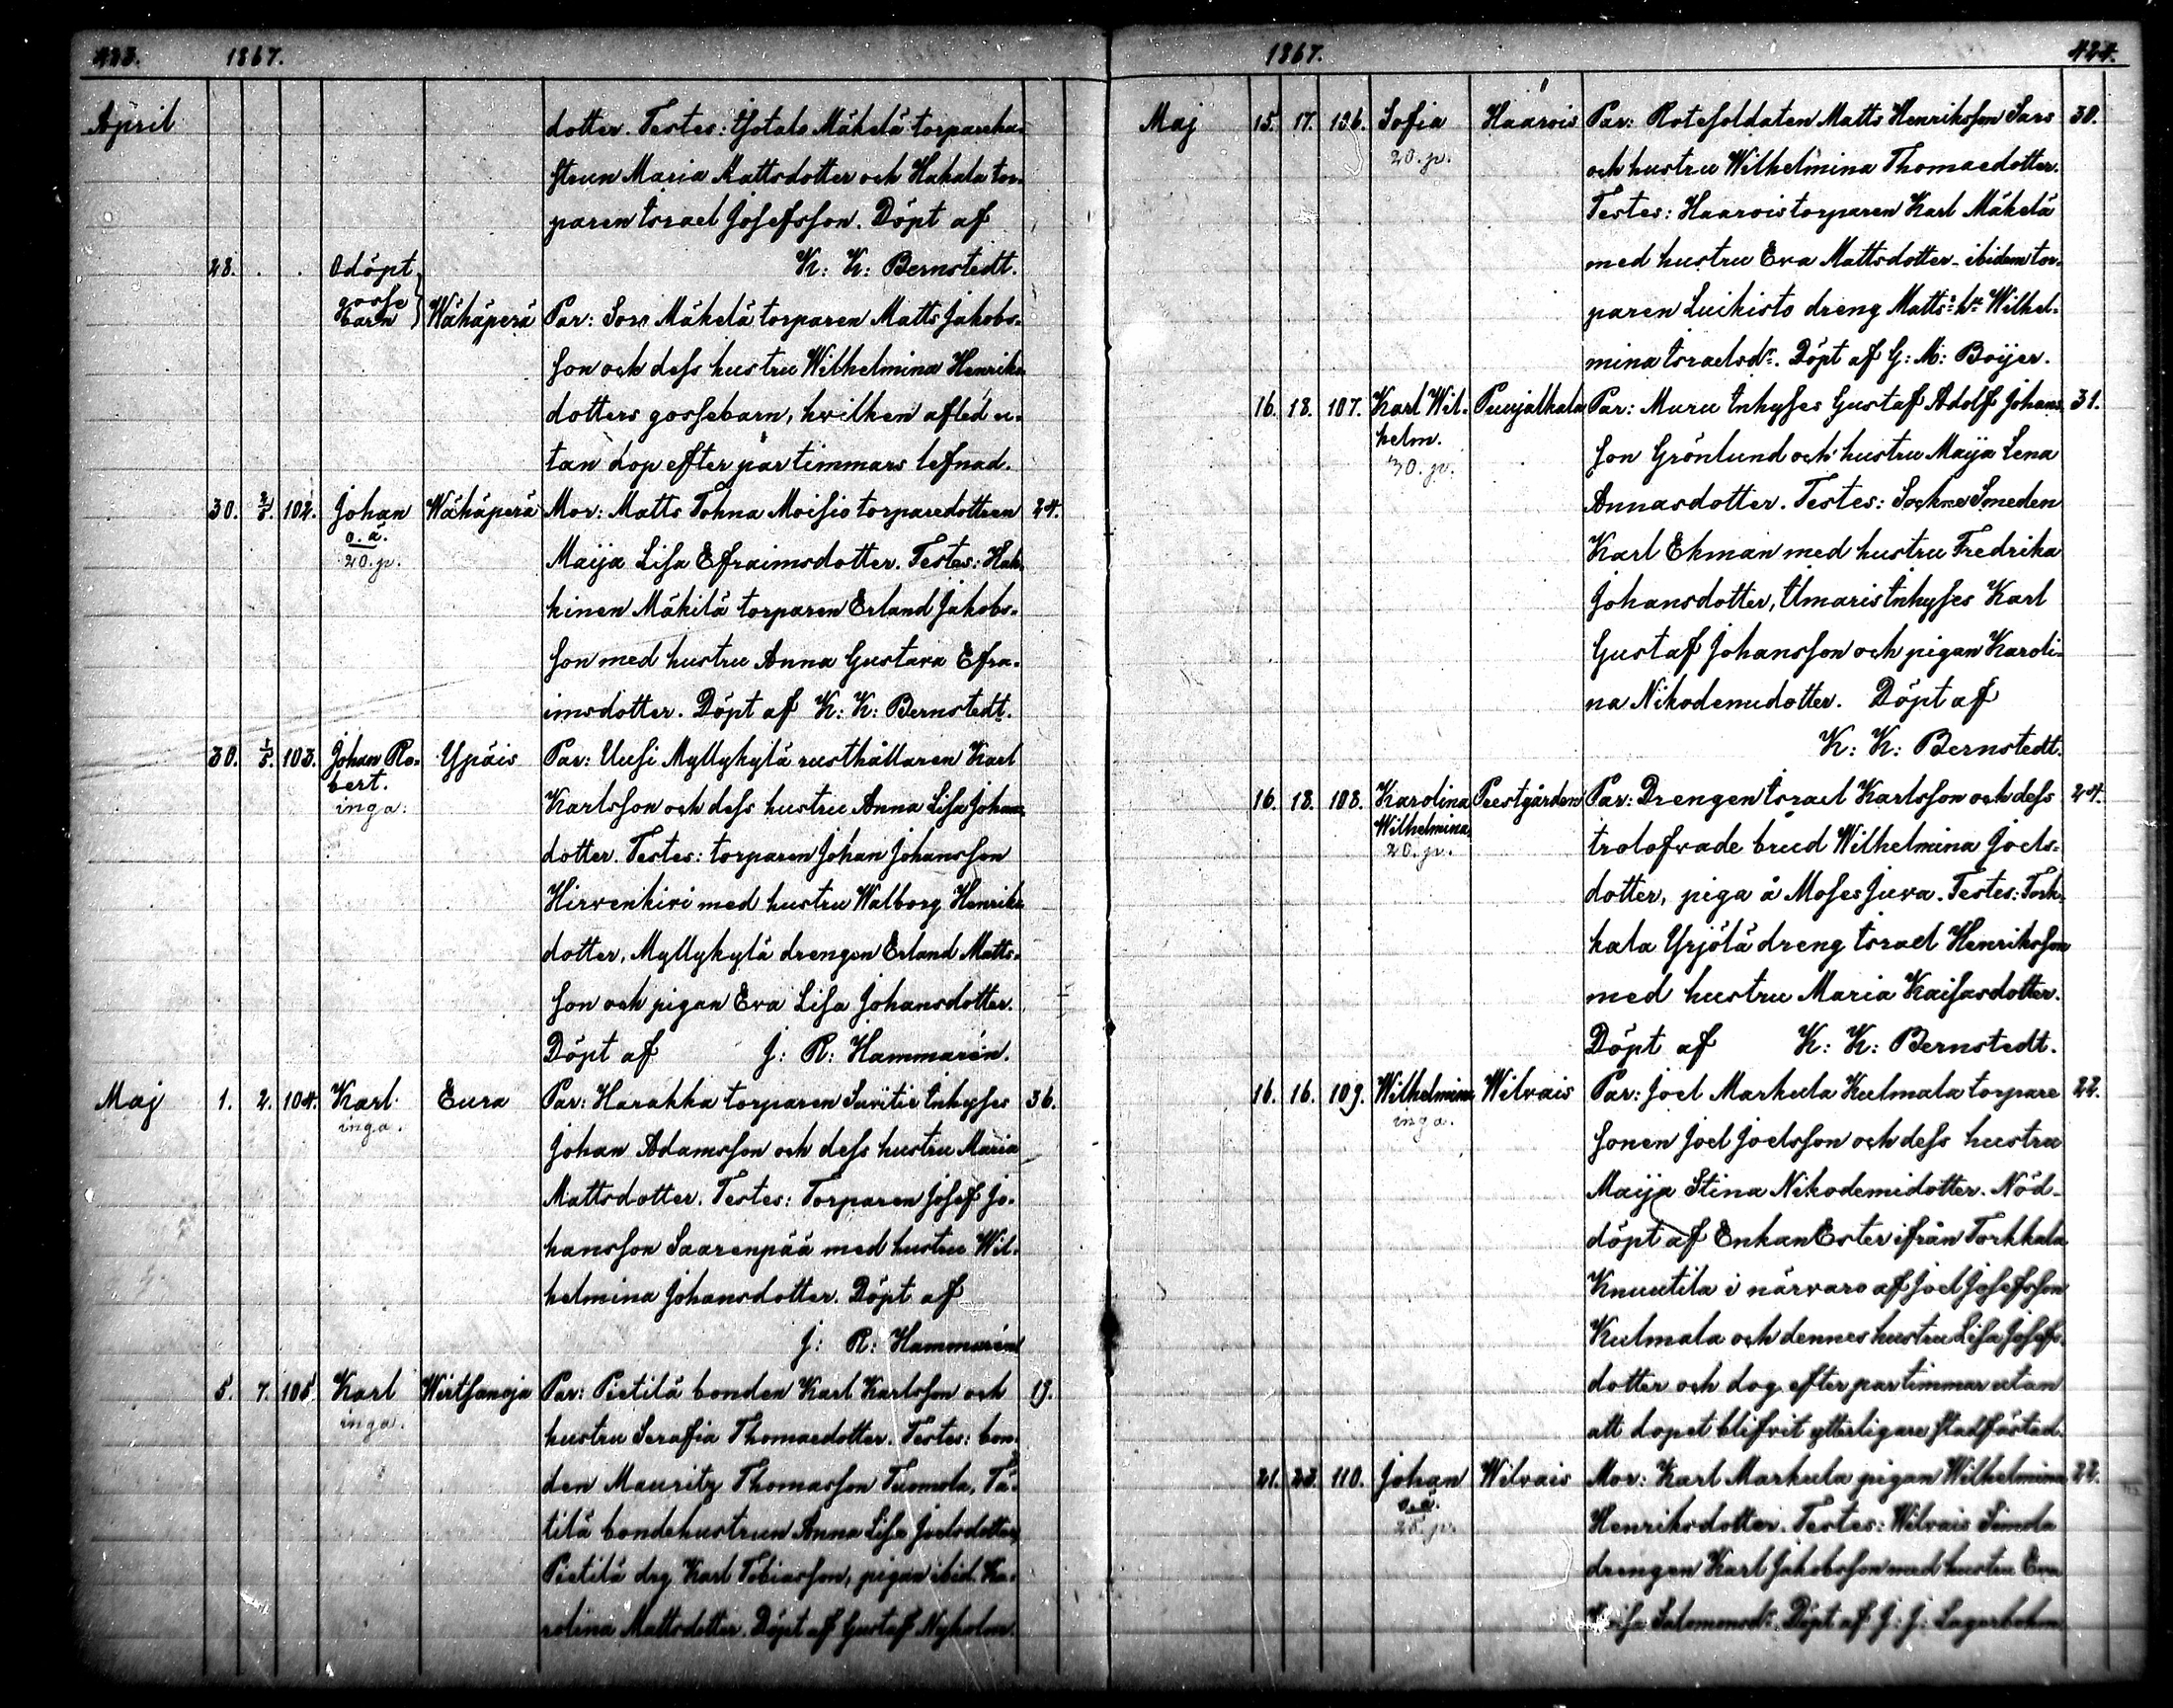 423. 1867.
April dotter. Testes: Isotalo Mäkelä torparehu-
strun Maria Mattsdotter och Hakala tor-
paren Israel Josefsson. Döpt af
28. . . Odöpt K: K: Bernstedt.
gosse
barn Wähäperä Par: Mäkelä torparen Matts Jakobs-
son och dess hustru Wilhelmina Henriks
dotters gossebarn, hvilken afled u-
tan dop efter par timmars lefnad.
30. 2/5. 102. Johan Wähäperä Mor: Matts Tohna Moisio torparedottren 24.
o. ä.
20. p. Maija Lisa Efraimsdotter. Testes: Hak
kinen Mäkilä torparen Erland Jakobs-
son med hustru Anna Gustava Efra-
imsdotter. Döpt af K: K: Bernstedt.
30. 1/5. 103. Johan Ro- Ypäis Par: Uusi Myllykylä rusthållaren Karl
bert.
inga. Karlsson och dess hustru Anna Lisa Johans
dotter. Testes: torparen Johan Johansson
Hirvenkivi med hustru Walborg Henriks
dotter, Myllykylä drengen Erland Matts-
son och pigan Eva Lisa Johansdotter.
Döpt af J: R: Hammarén.
Maj 1. 2. 104. Karl Eura Par: Harakka torparen Inhyses 36.
inga.
Johan Adamsson och dess hustru Maria
Mattsdotter. Testes: Torparen Josef Jo-
hansson Saarenpää med hustru Wil-
helmina Johansdotter. Döpt af
J: R: Hammarén
5. 7. 105. Karl Wirtsanoja Par: Pietilä bonden Karl Karlsson och 19.
inga.
hustru Serafia Thomaedotter. Testes: bon-
den Mauritz Thomasson Tuomola,
tilä bondehustrun Anna Lisa Joelsdotter,
Pietilä drg Karl Tobiasson, pigan ibid. Ka-
rolina Mattsdotter. Döpt af Gustaf Nyholm.
1867. 424.
Maj 15. 17. 106. Sofia Haarois Par: Rotesoldaten Matts Henriksson Sars 38.
20. p.
och hustru Wilhelmina Thomaedotter.
Testes: Haarois torparen Karl Mäkelä
med hustru Eva Mattsdotter, ibidem tor-
paren Luikisto dreng Matts: hu Wilhel-
mina Israelsdr. Döpt af G: M: Boijer.
16. 18. 107. Karl Wil- Puujalkala Par: Muru Inhyses Gustaf Adolf Johans 31.
helm.
30. p.
son Grönlund och hustru Maija Lena
Annasdotter. Testes: Sockne Smeden
Karl Ekman med hustru Fredrika
Johansdotter, Ilmaris Inhyses Karl
Gustaf Johansson och pigan Karoli-
na Nikodemidotter. Döpt af
K: K: Bernstedt.
16. 18. 108. Karolina Prestgården Par: Drengen Israel Karlsson och dess 24.
Wilhelmina
20. p. trolofvade brud Wilhelmina Joels-
dotter, piga å Moses Juva. Testes: Tork-
kala Yrjölä dreng Israel Henriksson
med hustru Maria Kaisasdotter.
Döpt af K: K: Bernstedt.
16. 16. 109. Wilhelmina Wilvais Par: Joel Markula Kulmala torpare 22.
inga.
sonen Joel Joelsson och dess hustru
Maija Stina Nikodemidotter. Nöd-
döpt af Enkan Ester ifrån Torkkala
Knuutila i närvaro af Joel Josefsson
Kulmala och dennes hustru Lisa Josefs-
dotter och dog efter par timmar utan
att dopet blifvit ytterligare stadfästad.
21. 23. 110. Johan Wilvais Mor: Karl Markula pigan Wilhelmina 22.
o. ä.
Henriksdotter. Testes: Wilvais Simola
drengen Karl Jakobsson med hustru Eva
Salomonsdr. Döpt af J: J: Lagerbohm